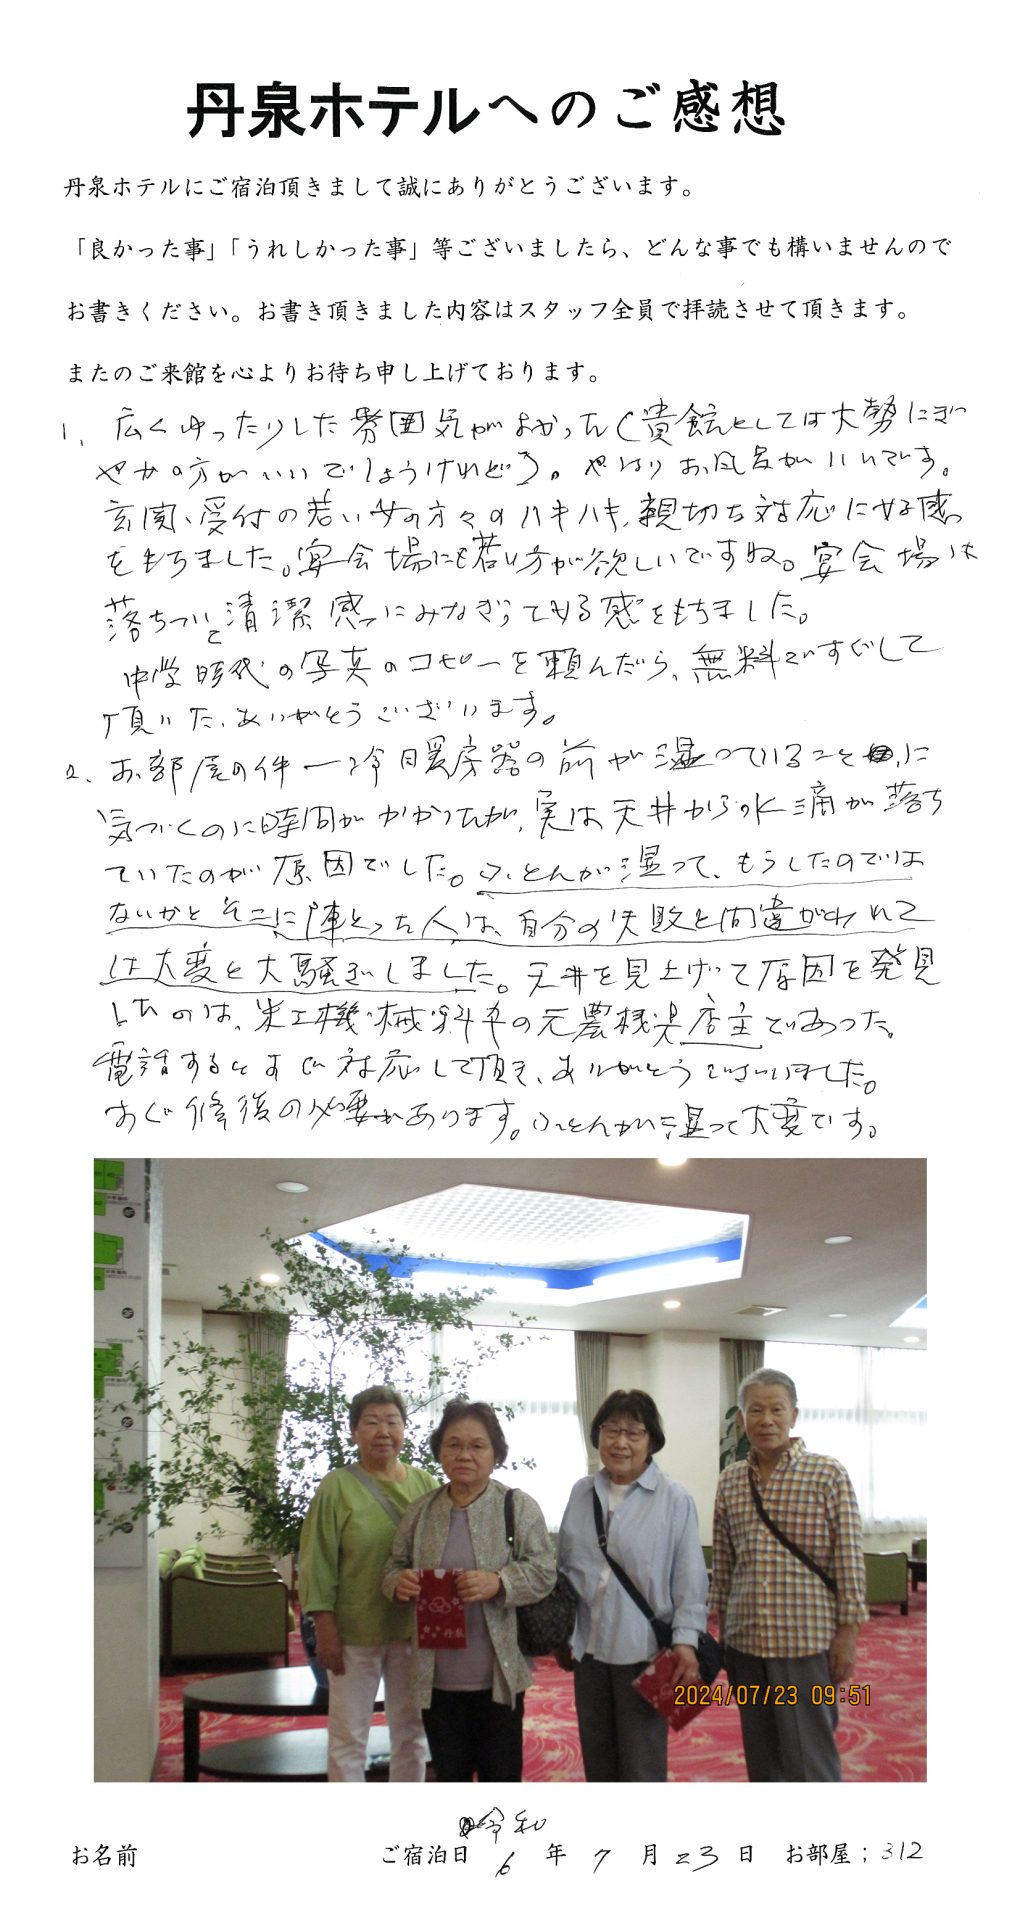 丹泉ホテルへのご感想
丹泉ホテルにご宿泊頂きまして誠にありがとうございます。
「良かった事」「うれしかった事」等ございましたら、どんな事でも構いませんので
お書きください。お書き頂きました内容はスタッフ全員で拝読させて頂きます。
またのご来館を心よりお待ち申し上げております。
1、広くゆったりした雰囲気がよかった(貴館としては大勢にぎ
やかの方がいいでしょうけれども。やはりお風呂がいいです。
玄関、受付の若い女の方々のハキハキ、親切な対応に好感
をもちました。宴会場にも若い方が欲しいですね。宴会場は
落ちついて清潔感にみなぎってゐる感をもちました。
中学時代の写真のコピーを頼んだら、無料ですぐして
頂いた、ありがとうございます。
2、お部屋の件ー冷暖房器の前が湿っていることに
気づくのに時間がかかったが、実は天井から水滴が落ち
ていたのが原因でした。ふとんが湿って、もうしたのでは
ないかとそこに陣とった人は、自分の失敗と間違がわれて
は大変と大騒ぎしました。天井を見上げて原因を発見
したのは、機械科卒の元農機具店主であった。
電話するとすぐ対応して頂き、ありがとうございました。
すぐ修復の必要があります。ふとんが湿って大変です。
丹泉
2024/07/23 09:51
令和
お名前 ご宿泊日 6 年 7 月 23 日 お部屋；312